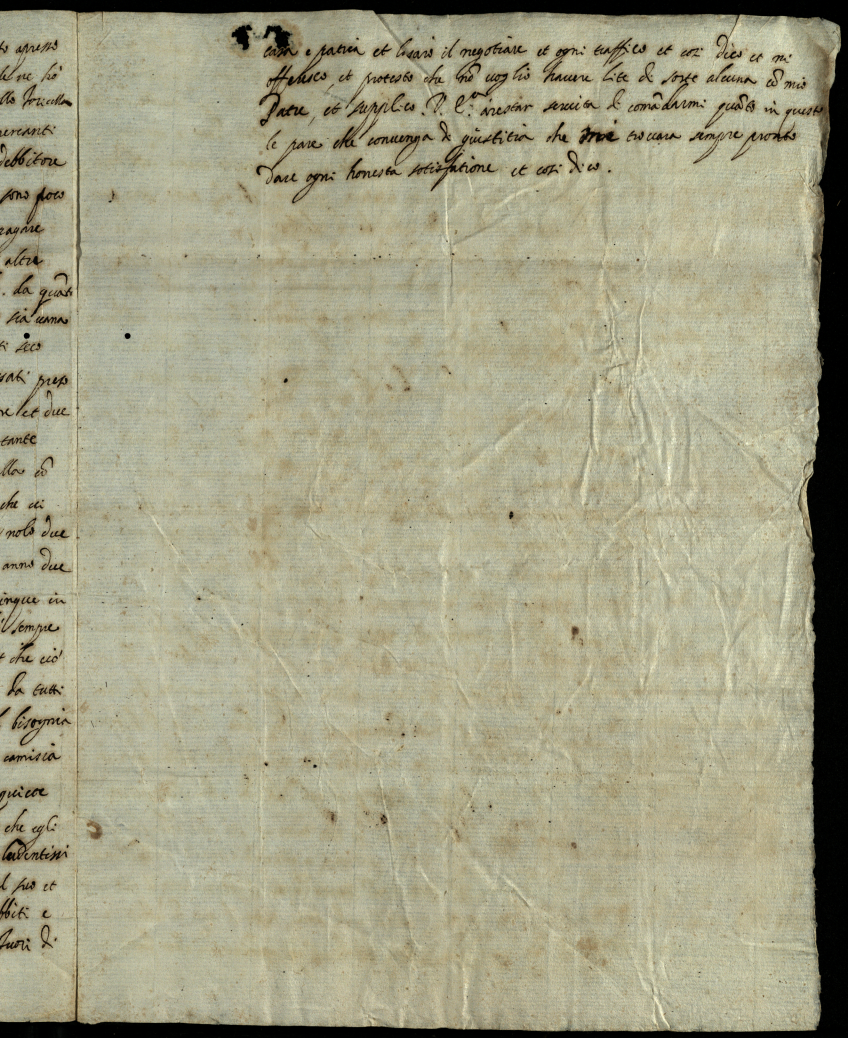 to apresso
le ne hò
llo Torcella
mercanti
debbitore
sono poco
pagare
altre
. da quāto
sia uana
ti seco
sati preso
re et due
tante
lla cō
che ci
nolo due
anno due
inque in
i sempre
t che ciò
da tutti
l bisognia
camisia
quiete
che egli
l suo et
bbiti e
fuori di
casa e patria et lasciaro il negotiare et ogni traffico et così dico et mi
offerisco, et protesto che nō uoglio hauere lite di sorte alcuna cō mio
Patre, et supplico. V. E. a restar seruita di comādarmi quāto in questo
le pare che conuenga di giustitia che mi trouara sempre pronto
dare ogni honesta sotisfatione et così dico.